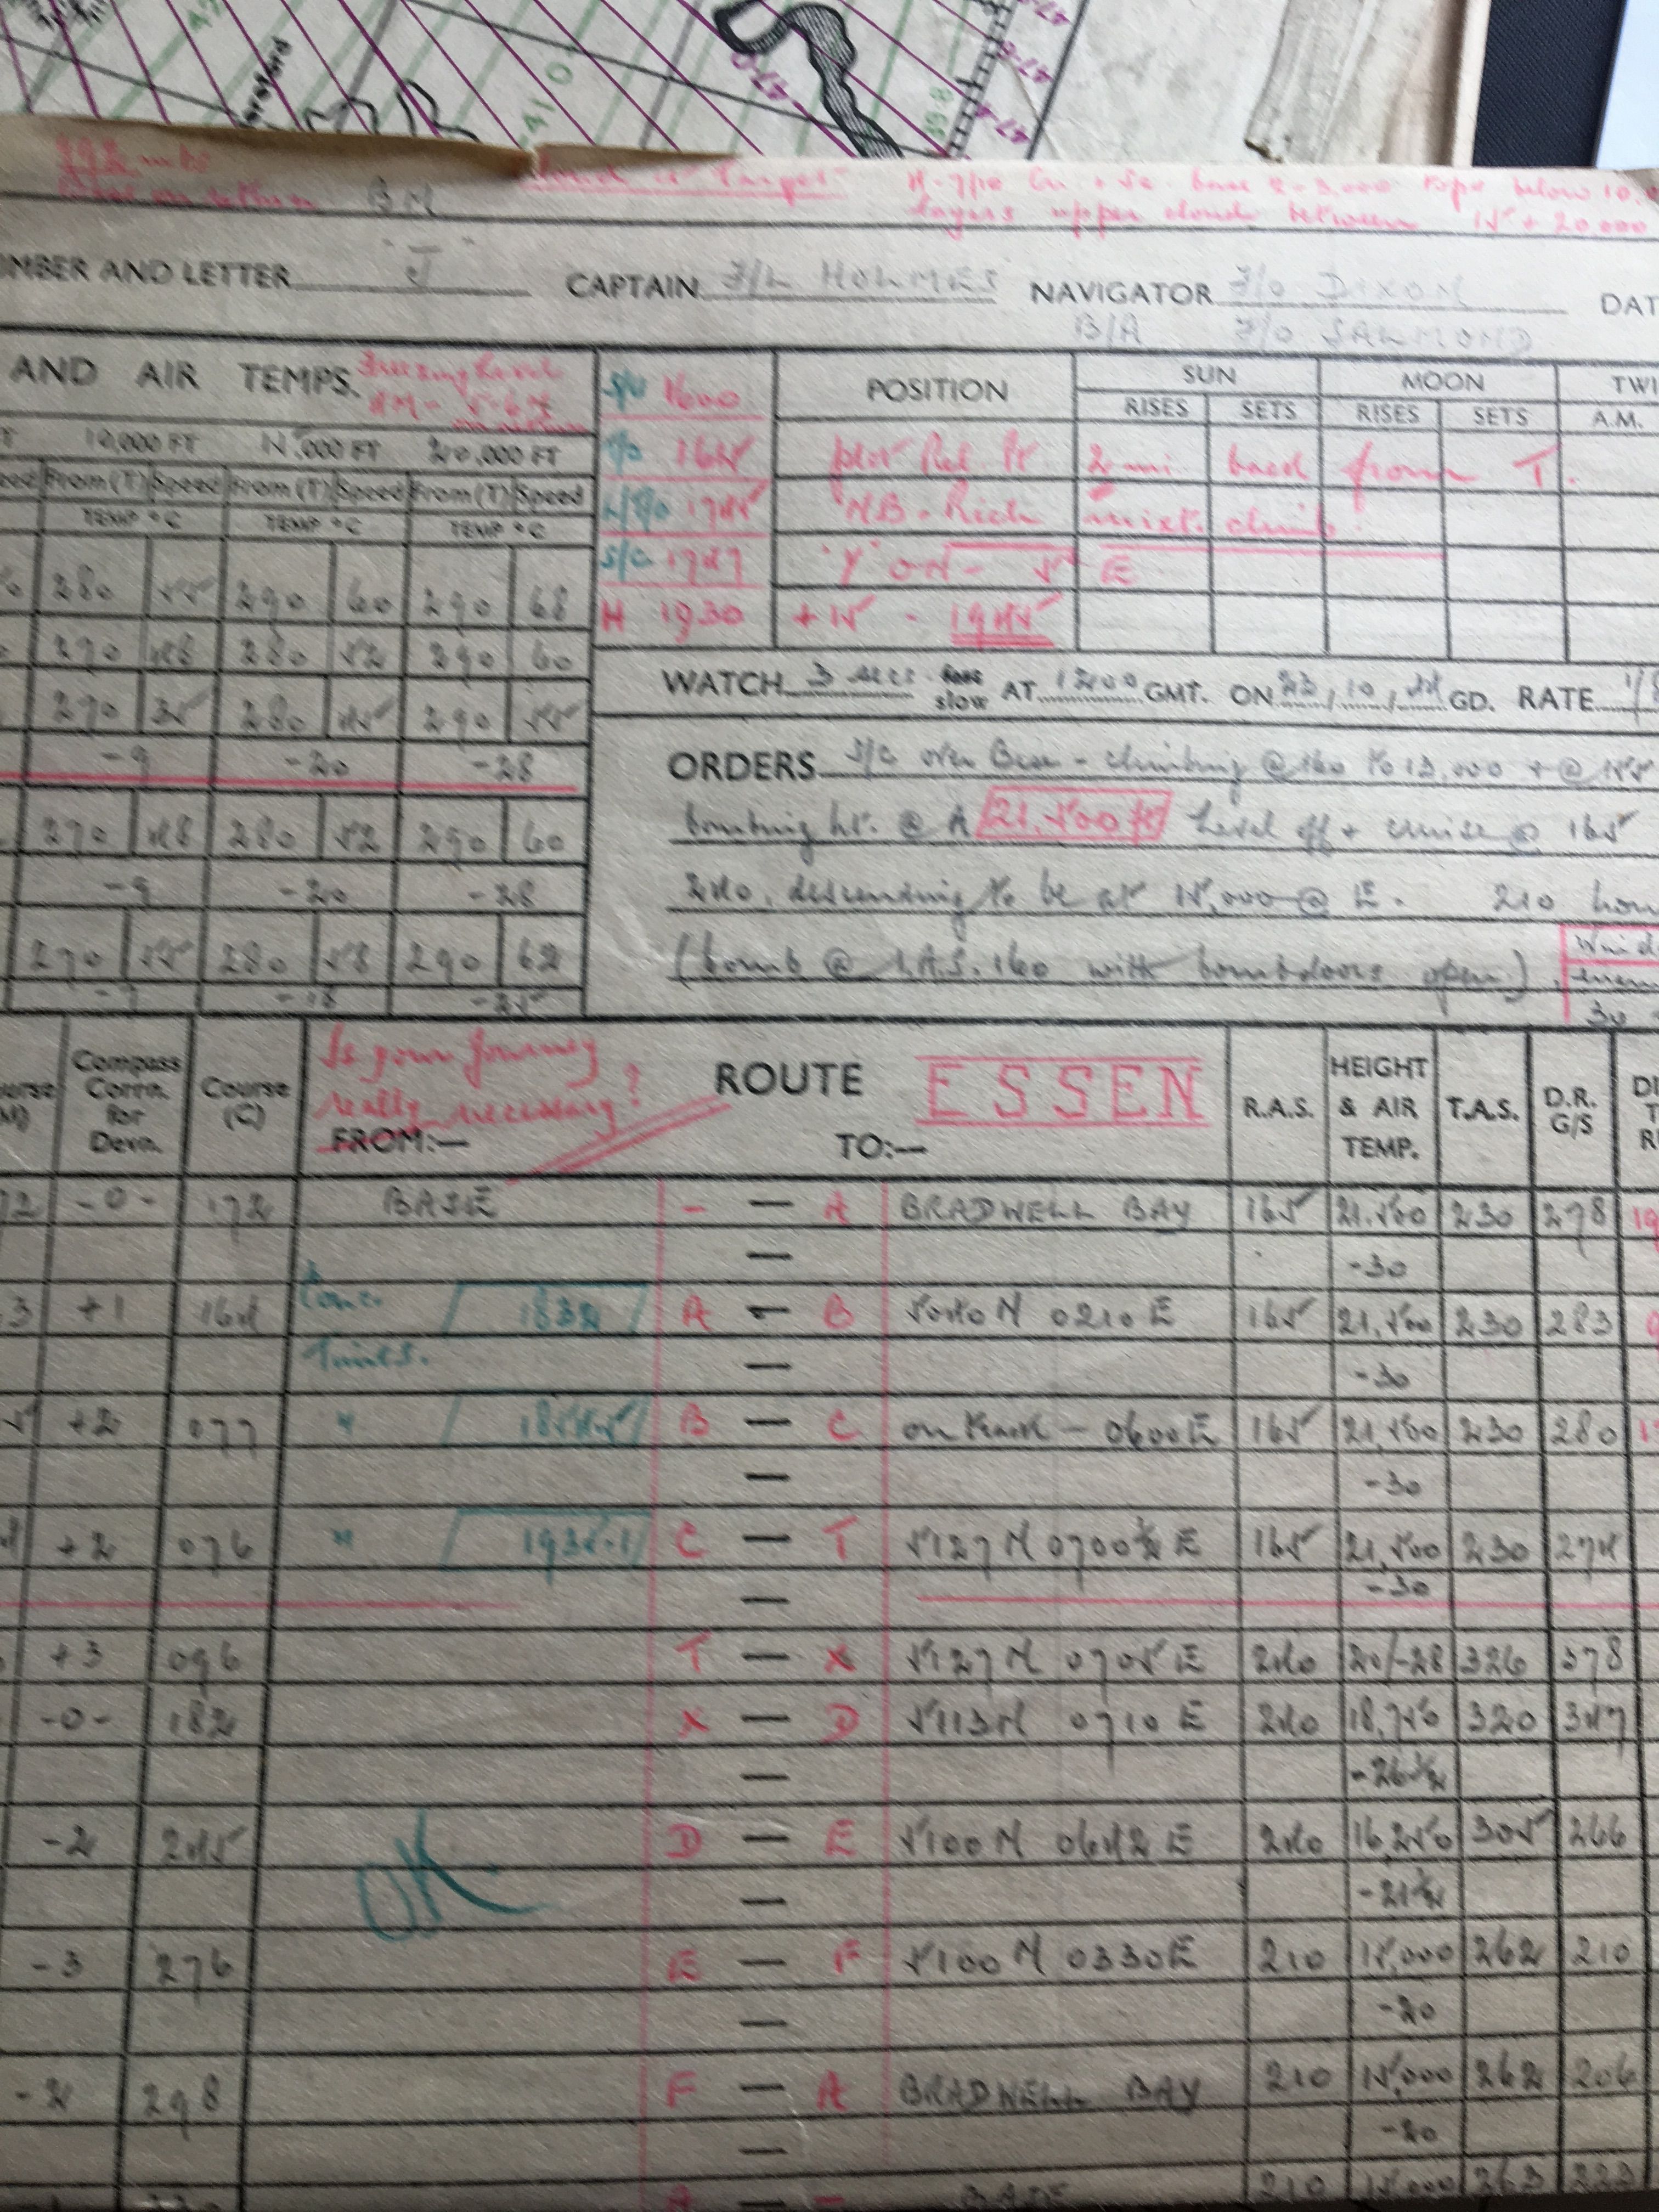 Hereford
41
0
398
47
Cloud @ Target
4-7/10 Cu. + Sc. base 2-3,000 tops below 10.
layers upper cloud between 15 + 20,000
MBER AND LETTER "J" CAPTAIN F/L HOLMES NAVIGATOR F/O DIXON DAT
B/A F/O SALMOND
AND AIR TEMPS. Freezing level
POSITION SUN MOON TWI
RISES SETS RISES SETS A.M.
10,000 FT 15,000 FT 20,000 FT
eed From (T) Speed From (T) Speed From (T) Speed
TEMP °C TEMP °C TEMP °C
S/U 1600
T/O 1645 2 mi. back from T.
1745 "NB. Rich mixt. climb.
S/C 1747 "Y" ON - 5 E
H 1930 + 15 - 1945
280 55 290 60 290 68
270 48 280 52 290 60
270 35 280 45 290 55
-9 -20 -28
270 48 280 52 290 60
-9 -20 -28
270 55 280 58 290 62
-7 -18 -25
WATCH 3 secs fast slow AT 1200 GMT. ON 23, 10, 44 GD. RATE
ORDERS S/C over Base - climbing @ 160 to 15,000 + @ 155
bombing ht. @ A 21,500 ft Level off + cruise @ 165
240, descending to be at 15,000 @ E. 210 hom
(bomb @ I.A.S. 160 with bombdoors open)
30
ourse (M) Compass Corrn. for Devn. Course (C) Is your Journey really necessary? FROM:— ROUTE ESSEN TO:— R.A.S. HEIGHT & AIR TEMP. T.A.S. D.R. G/S
72 -0- 172 BASE - — A BRADWELL BAY 165 21,500 230 278
— -30
3 +1 164 Conc. Times. 1832 A — B 5040 N 0210 E 165 21,500 230 283
— -30
5 +2 077 " 1854.5 B — C on track — 0600 E 165 21,500 230 280
— -30
4 +2 076 " 1935.1 C — T 5127 N 0700½ E 165 21,500 230 274
— -30
+3 096 T — X 5127 N 0705 E 240 20/-28 326 378
-0- 182 X — D 5113 N 0710 E 240 18,750 320 347
— -26½
-2 245 OK. D — E 5100 N 0642 E 240 16,250 305 266
— -21½
-3 276 E — F 5100 N 0330 E 210 15,000 262 210
— -20
-2 298 F — A BRADWELL BAY 210 15,000 262 206
— -20
A — - BASE 210 15,000 263 223